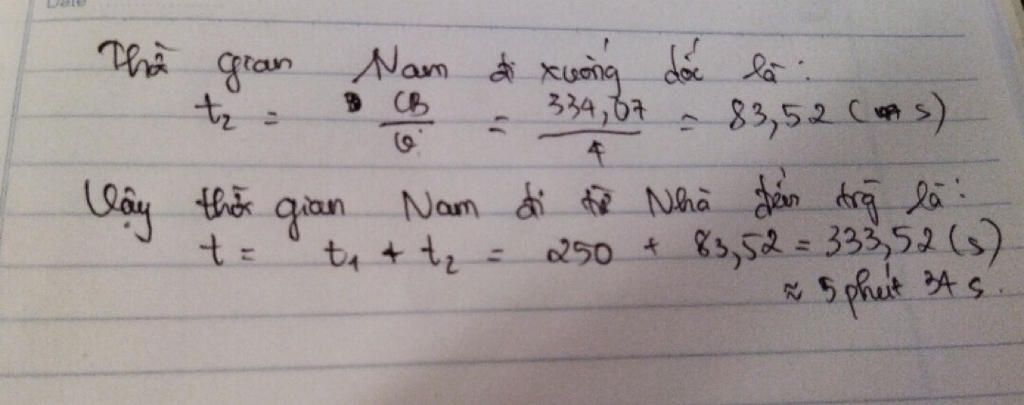 Date
Thời gian Nam đi xuống dốc là:
t₂ = CB/v = 334,07/4 = 83,52 (s)
Vậy thời gian Nam đi từ Nhà đến trg là:
t = t₁ + t₂ = 250 + 83,52 = 333,52 (s)
≈ 5 phút 34 s.